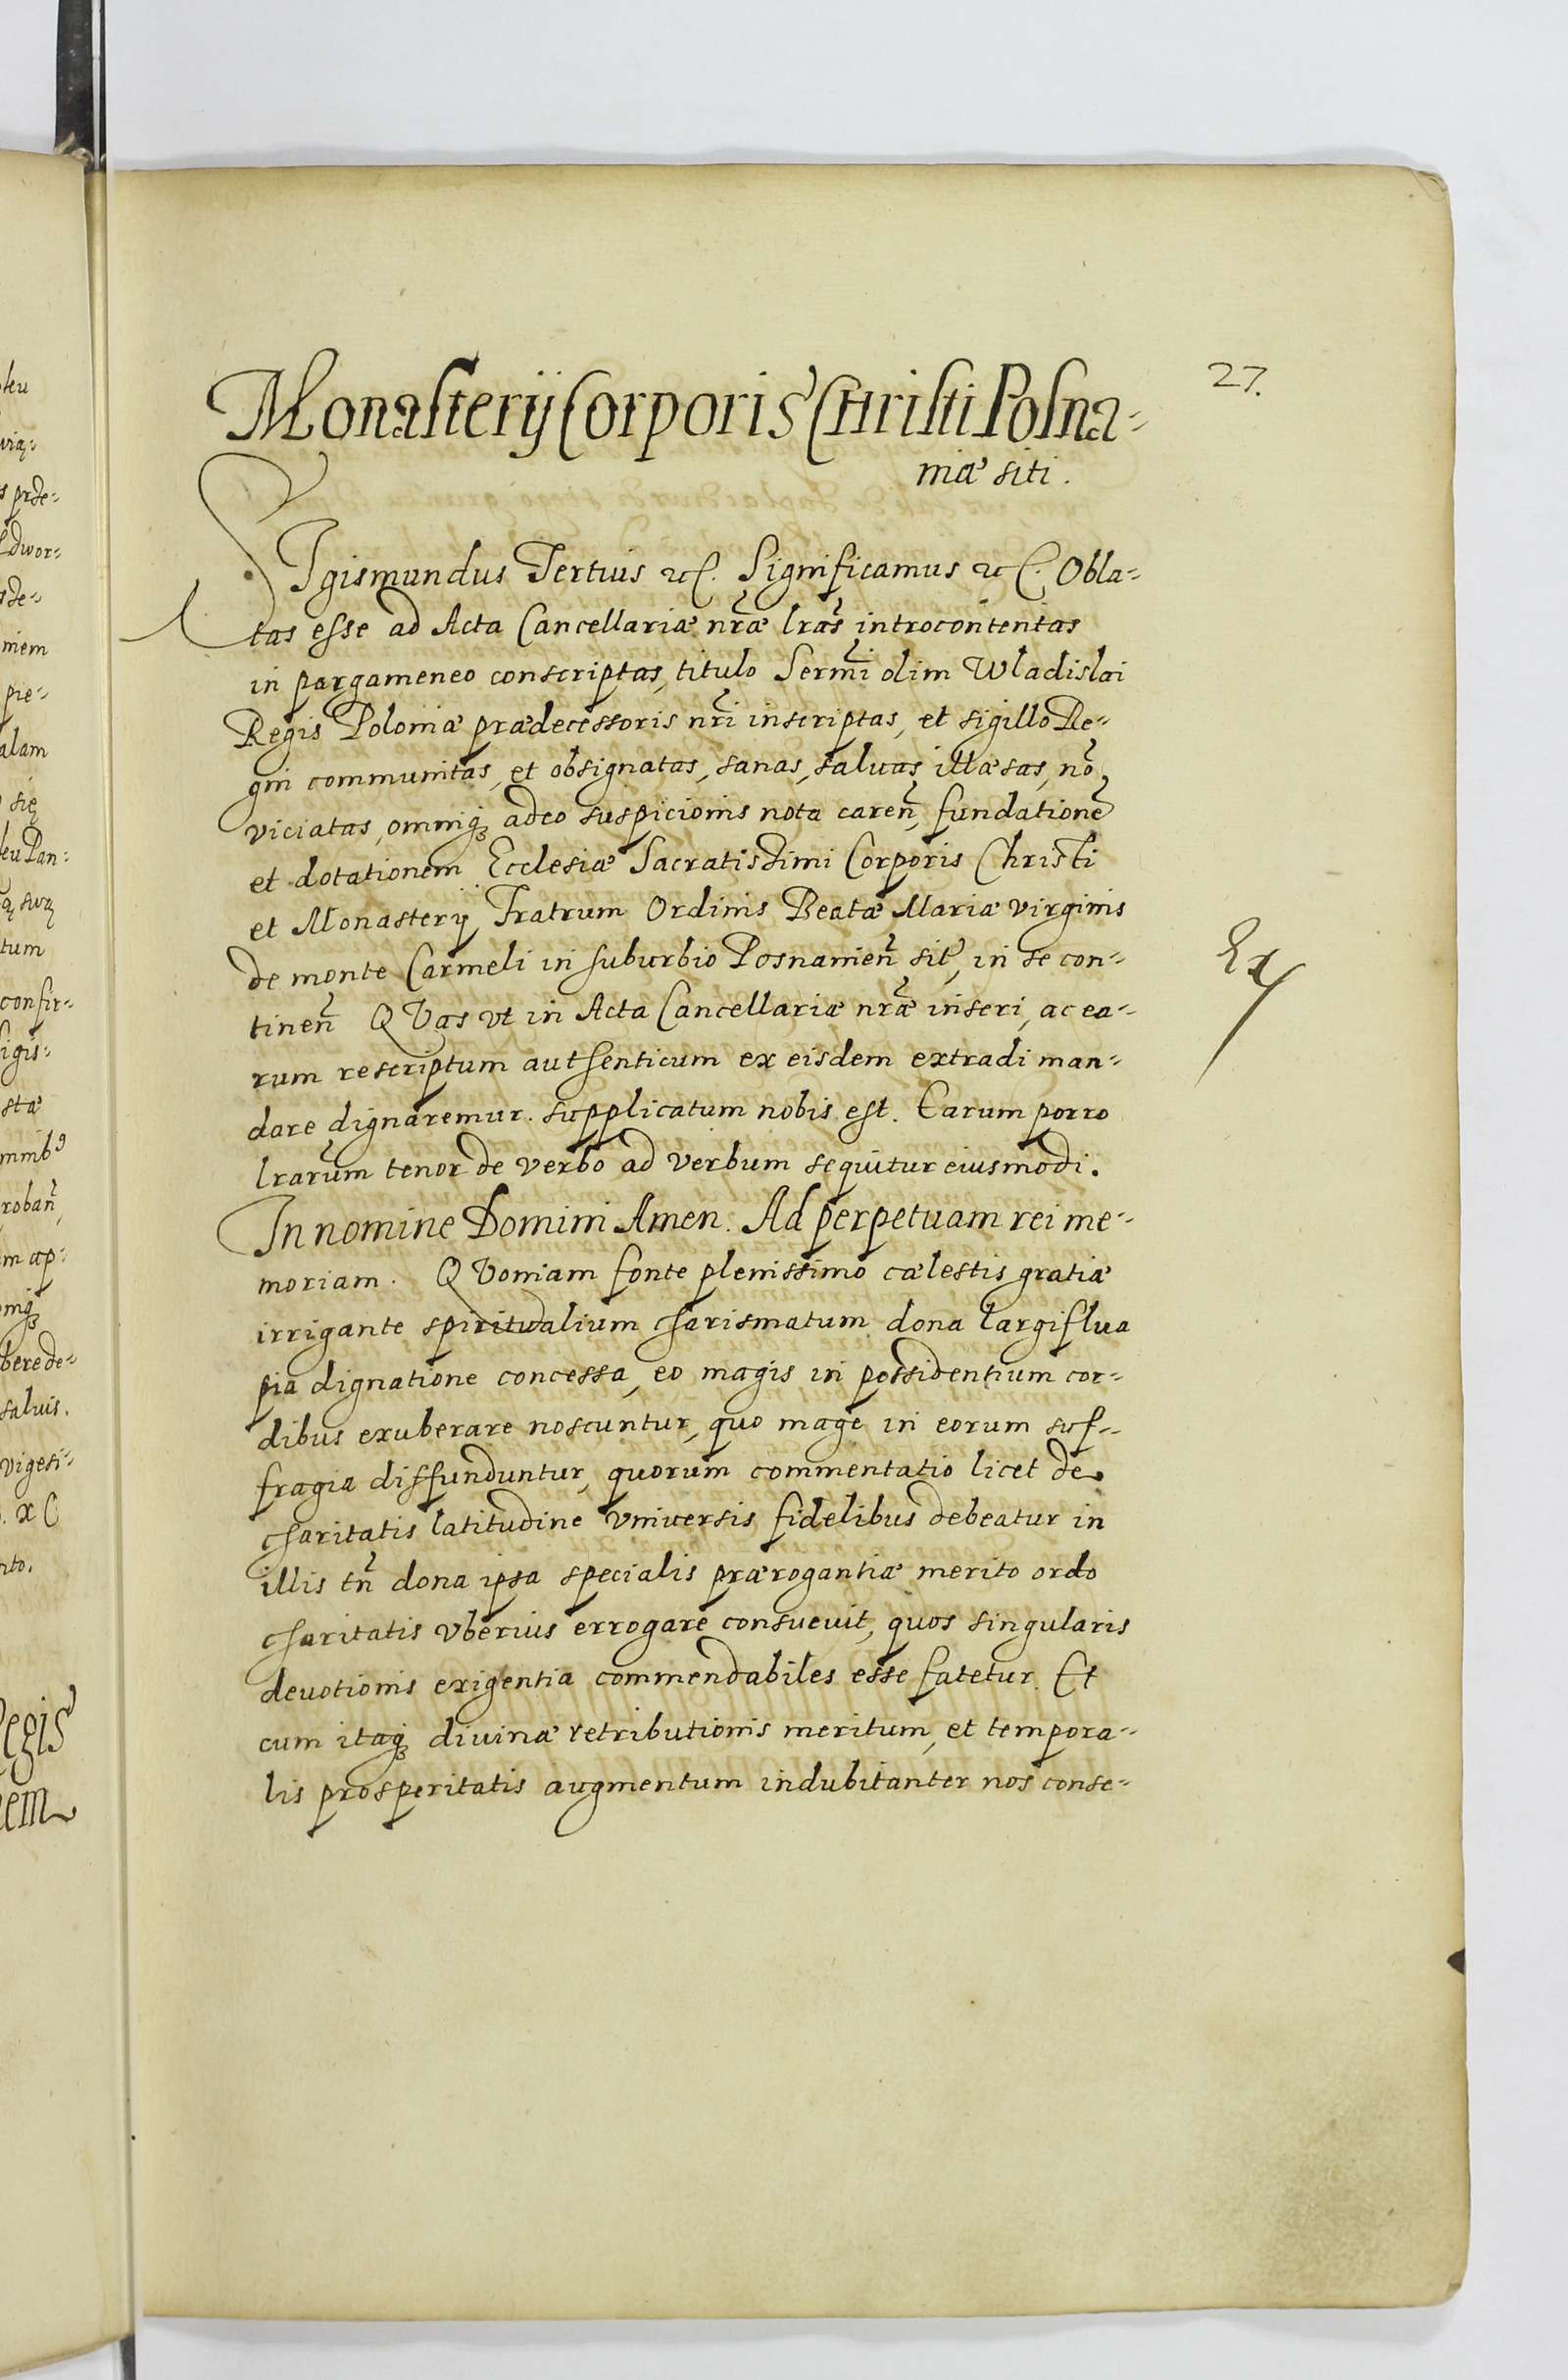 27.
Monasterij Corporis Christi Posna-
niæ siti.
SIgismundus Tertius etc. Significamus etc. Obla-
tas esse ad Acta Cancellariæ nr̃æ lr̃as introcontentas
in pargameneo conscriptas, titulo Serm̃i olim Wladislai
Regis Poloniæ prædecessoris nr̃i inscriptas, et sigillo Re-
gni communitas, et obsignatas, sanas, saluas, illæsas, nõ
viciatas, omniq; adeo suspicionis nota careñ, fundationẽ
et dotationem Ecclesiæ Sacratissimi Corporis Christi
et Monasterij Fratrum Ordinis Beatæ Mariæ virginis
de monte Carmeli in suburbio Posnanieñ sit̃, in se con-
tineñ QVas vt in Acta Cancellariæ nr̃æ inseri, ac ea-
rum rescriptum authenticum ex eisdem extradi man-
dare dignaremur. supplicatum nobis est. Earum porro
lr̃arum tenor de verbo ad verbum sequitur eiusmodi.
In nomine Domini Amen. Ad perpetuam rei me-
moriam. QVoniam fonte plenissimo cælestis gratiæ
irrigante spiritualium charismatum dona largiflua
pia dignatione concessa, eo magis in possidentium cor-
dibus exuberare noscuntur, quo mage in eorum suf-
fragia diffunduntur, quorum commentatio licet de
charitatis latitudine vniversis fidelibus debeatur in
illis tñ dona ipsa specialis prærogantiæ merito ordo
charitatis vberius errogare consueuit, quos singularis
deuotionis exigentia commendabiles esse fatetur. Et
cum itaq; diuinæ retributionis meritum, et tempora-
lis prosperitatis augmentum indubitanter nos conse-
Ex